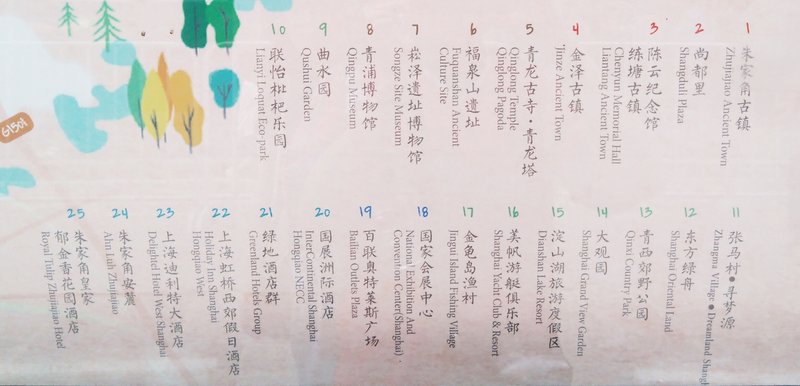 1
朱家角古镇
Zhujiajiao Ancient Town
2
尚都里
Shangduli Plaza
3
陈云纪念馆
练塘古镇
Chenyun Memorial Hall
Liantang Ancient Town
4
金泽古镇
Jinze Ancient Town
5
青龙古寺·青龙塔
Qinglong Temple
Qinglong Pagoda
6
福泉山遗址
Fuquanshan Ancient
Culture Site
7
崧泽遗址博物馆
Songze Site Museum
8
青浦博物馆
Qingpu Museum
9
曲水园
Qushui Garden
10
联怡枇杷乐园
Lianyi Loquat Eco-park
11
张马村●寻梦源
Zhangma Village ● Dreamland Shang
12
东方绿舟
Shanghai Oriental Land
13
青西郊野公园
Qinxi Country Park
14
大观园
Shanghai Grand View Garden
15
淀山湖旅游度假区
Dianshan Lake Resort
16
美帆游艇俱乐部
Shanghai Yacht Club & Resort
17
金龟岛渔村
Jingui Island Fishing Village
18
国家会展中心
National Exhibition And
Convention Center(Shanghai)
19
百联奥特莱斯广场
Bailian Outlets Plaza
20
国展洲际酒店
InterContinental Shanghai
Hongqiao NECC
21
绿地酒店群
Greenland Hotels Group
22
上海虹桥西郊假日酒店
Holiday Inn Shanghai
Hongqiao West
23
上海迪利特大酒店
Delightel Hotel West Shanghai
24
朱家角安麓
Ahn Luh Zhujiajiao
25
朱家角皇家
郁金香花园酒店
Royal Tulip Zhujiajiao Hotel
G1501